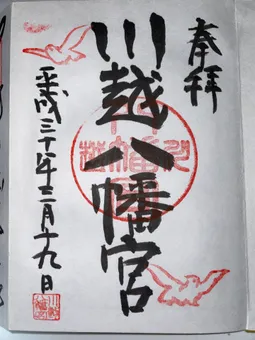 奉拝
川越八幡宮
平成三十年三月十九日